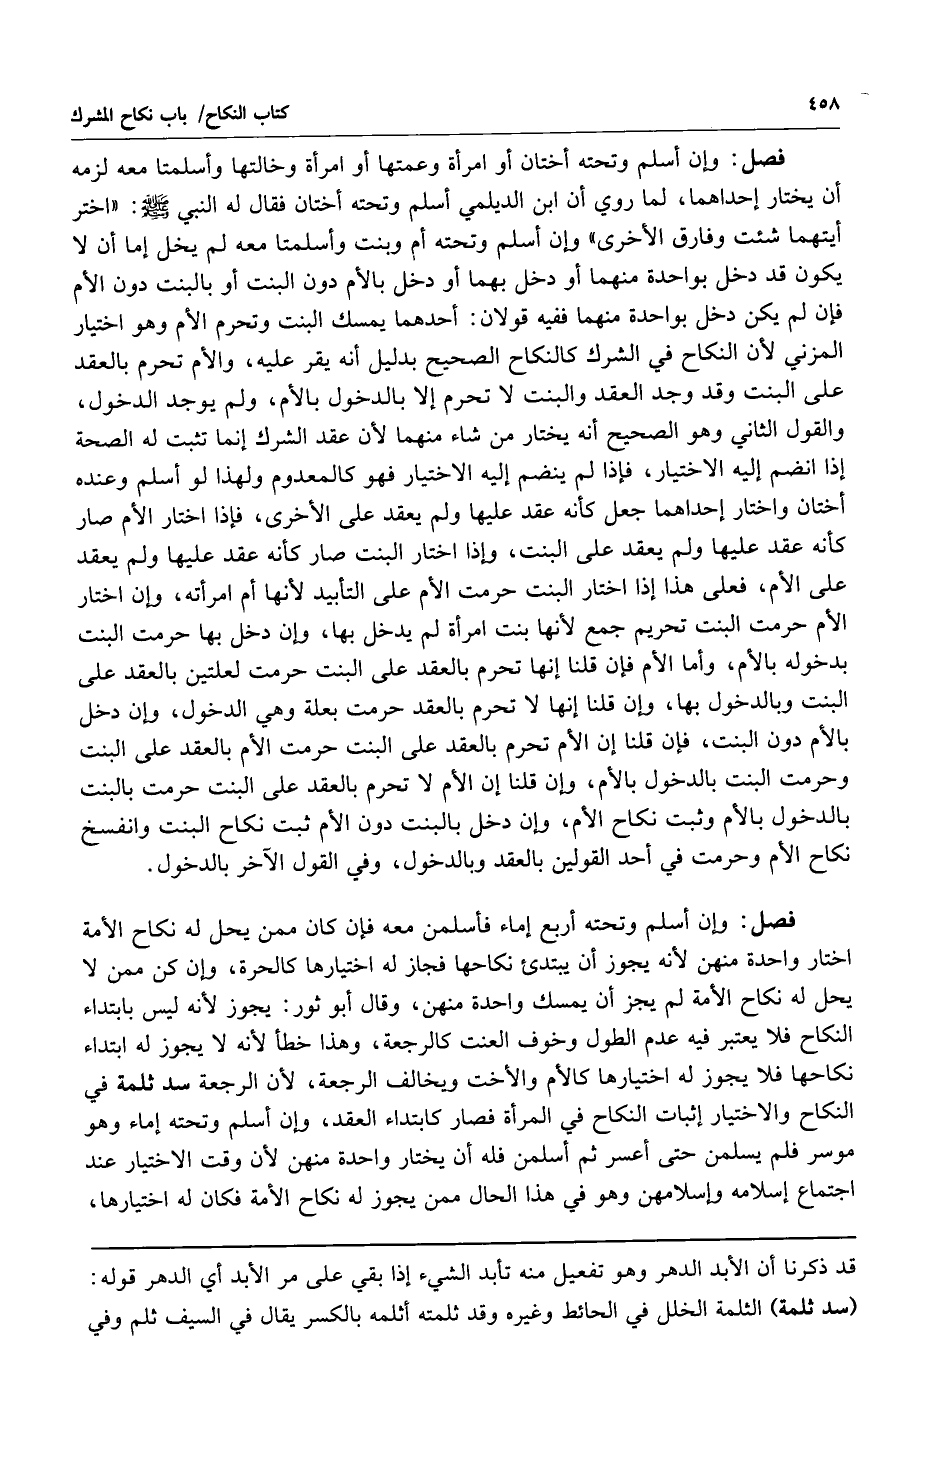 ٤٥٨
كتاب النكاح/ باب نكاح المشرك
فصل: وإن أسلم وتحته أختان أو امرأة وعمتها أو امرأة وخالتها وأسلمتا معه لزمه
أن يختار إحداهما، لما روي أن ابن الديلمي أسلم وتحته أختان فقال له النبي ﷺ: «اختر
أيتهما شئت وفارق الأخرى» وإن أسلم وتحته أم وبنت وأسلمتا معه لم يخل إما أن لا
يكون قد دخل بواحدة منهما أو دخل بهما أو دخل بالأم دون البنت أو بالبنت دون الأم
فإن لم يكن دخل بواحدة منهما ففيه قولان: أحدهما يمسك البنت وتحرم الأم وهو اختيار
المزني لأن النكاح في الشرك كالنكاح الصحيح بدليل أنه يقر عليه، والأم تحرم بالعقد
على البنت وقد وجد العقد والبنت لا تحرم إلا بالدخول بالأم، ولم يوجد الدخول،
والقول الثاني وهو الصحيح أنه يختار من شاء منهما لأن عقد الشرك إنما تثبت له الصحة
إذا انضم إليه الاختيار، فإذا لم ينضم إليه الاختيار فهو كالمعدوم ولهذا لو أسلم وعنده
أختان واختار إحداهما جعل كأنه عقد عليها ولم يعقد على الأخرى، فإذا اختار الأم صار
كأنه عقد عليها ولم يعقد على البنت، وإذا اختار البنت صار كأنه عقد عليها ولم يعقد
على الأم، فعلى هذا إذا اختار البنت حرمت الأم على التأبيد لأنها أم امرأته، وإن اختار
الأم حرمت البنت تحريم جمع لأنها بنت امرأة لم يدخل بها، وإن دخل بها حرمت البنت
بدخوله بالأم، وأما الأم فإن قلنا إنها تحرم بالعقد على البنت حرمت لعلتين بالعقد على
البنت وبالدخول بها، وإن قلنا إنها لا تحرم بالعقد حرمت بعلة وهي الدخول، وإن دخل
بالأم دون البنت، فإن قلنا إن الأم تحرم بالعقد على البنت حرمت الأم بالعقد على البنت
وحرمت البنت بالدخول بالأم، وإن قلنا إن الأم لا تحرم بالعقد على البنت حرمت بالبنت
بالدخول بالأم وثبت نكاح الأم، وإن دخل بالبنت دون الأم ثبت نكاح البنت وانفسخ
نكاح الأم وحرمت في أحد القولين بالعقد وبالدخول، وفي القول الآخر بالدخول.
فصل: وإن أسلم وتحته أربع إماء فأسلمن معه فإن كان ممن يحل له نكاح الأمة
اختار واحدة منهن لأنه يجوز أن يبتدئ نكاحها فجاز له اختيارها كالحرة، وإن كن ممن لا
يحل له نكاح الأمة لم يجز أن يمسك واحدة منهن، وقال أبو ثور: يجوز لأنه ليس بابتداء
النكاح فلا يعتبر فيه عدم الطول وخوف العنت كالرجعة، وهذا خطأ لأنه لا يجوز له ابتداء
نكاحها فلا يجوز له اختيارها كالأم والأخت ويخالف الرجعة، لأن الرجعة سد ثلمة في
النكاح والاختيار إثبات النكاح في المرأة فصار كابتداء العقد، وإن أسلم وتحته إماء وهو
موسر فلم يسلمن حتى أعسر ثم أسلمن فله أن يختار واحدة منهن لأن وقت الاختيار عند
اجتماع إسلامه وإسلامهن وهو في هذا الحال ممن يجوز له نكاح الأمة فكان له اختيارها،
قد ذكرنا أن الأبد الدهر وهو تفعيل منه تأبد الشيء إذا بقي على مر الأبد أي الدهر قوله:
(سد ثلمة) الثلمة الخلل في الحائط وغيره وقد ثلمته أثلمه بالكسر يقال في السيف ثلم وفي